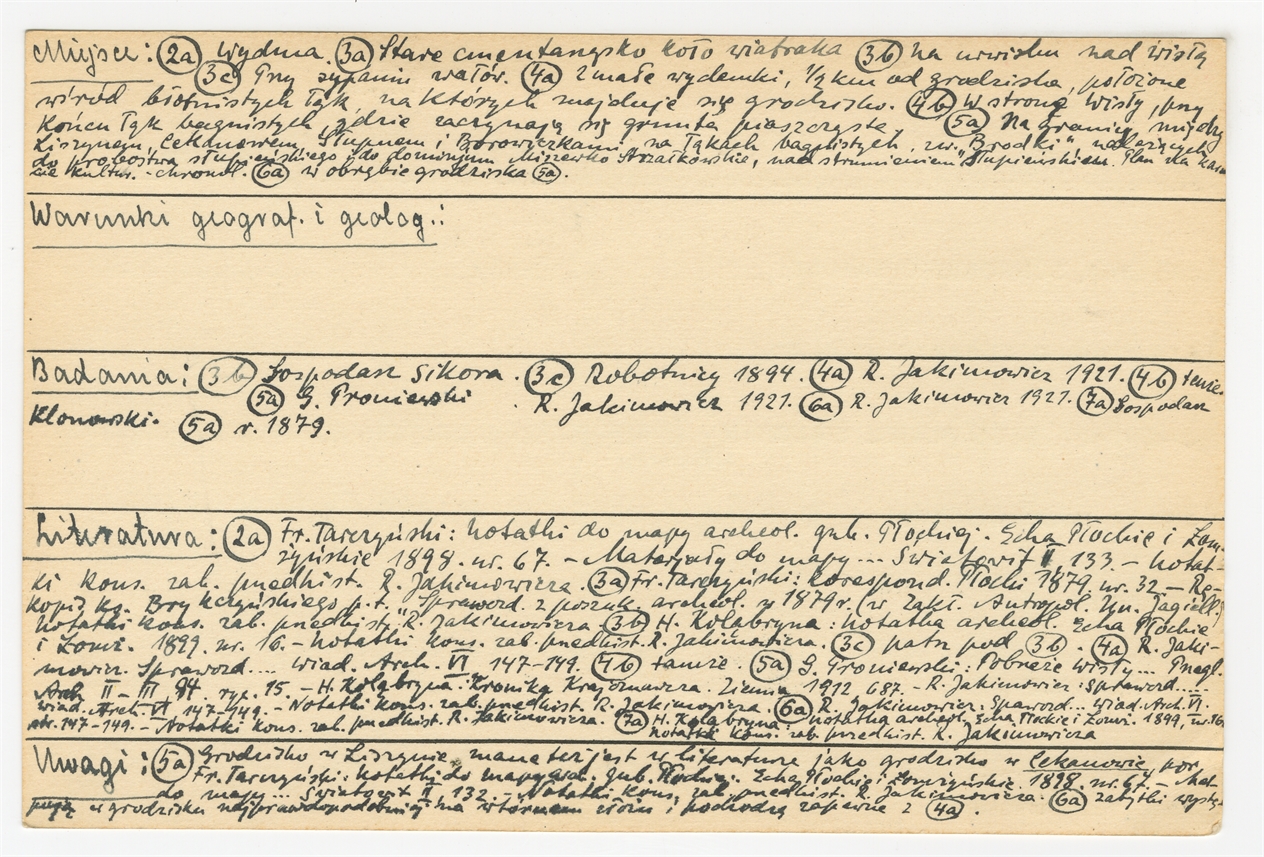 Miejsce: (2a) Wydma. (3a) Stare cmentarzysko koło wiatraka (3b) Na urwisku nad Wisłą
(3c) Przy sypaniu wałów. (4a) 2 małe wydemki, 1/2 km od grodziska, położone
wśród błotnistych łąk, na których znajduje się grodzisko. (4b) W stronę Wisły, przy
końcu łąk bagnistych, gdzie zaczynają się grunta piaszczyste. (5a) Na granicy między
Liszynem, Cekanowem, Słupnem i Borowiczkami, na łąkach bagnistych, zw. "Brodki", należących
do probostwa słupieńskiego i do dominjum Miszewko Strzałkowskie, nad strumieniem "Słupieńskim. Plan na kar-
cie kultur.-chronol. (6a) w obrębie grodziska (5a).
Warunki geograf. i geolog.:
Badania: (3b) Gospodarz Sikora. (3c) Robotnicy 1894. (4a) R. Jakimowicz 1921. (4b) tenże.
(5a) G. Proniewski R. Jakimowicz 1921. (6a) R. Jakimowicz 1921. (7a) Gospodarz
Klonowski. (5a) r. 1879.
Literatura: (2a) Fr. Tarczyński: Notatki do mapy archeol. gub. Płockiej. Echa Płockie i Łom-
żyńskie 1898. nr. 67. – Materjały do mapy... Światowit II, 133. – Notat-
ki kons. zab. przedhist. R. Jakimowicza. (3a) Fr. Tarczyński: Korespond. Płocki 1879, nr. 32 – Rę-
kopis ks. Brykczyńskiego p.t. "Sprawozd. z poszuk. archeol. w 1879r. (w Zakł. Antropol. Un. Jagiell.)
Notatki kons. zab. przedhist. R. Jakimowicza (3b) H. Kołabryna: Notatka archeol. Echa Płockie
i Łomż. 1899. nr. 16. – Notatki kons. zab. przedhist. R. Jakimowicza. (3c) patrz pod (3b). (4a) R. Jaki-
mowicz. Sprawozd... Wiad. Arch. VI 147–149. (4b) tamże. (5a) G. Proniewski: Pobrzeże Wisły... Przegl.
Arch. II–III, ryc. 15. – H. Kołabryna: Kronika Krajoznawcza. Ziemia 1912 687. – R. Jakimowicz: Sprawozd.....
Wiad. Arch. VI 147–149. – Notatki kons. zab. przedhist. R. Jakimowicza. (6a) R. Jakimowicz: Spawozd... Wiad. Arch. VI.
str. 147–149. – Notatki kons. zab. przedhist. R. Jakimowicza. (7a) H. Kołabryna: Notatka archeol. Echa Płockie i Łomż. 1899, nr. 16.
Notatki kons. zab. przedhist. R. Jakimowicza
Uwagi: (5a) Grodzisko w Liszynie, znane też jest w literaturze jako grodzisko w Cekanowie, por.
Fr. Tarczyński: Notatki do mapy arch. gub. Płockiej. Echa Płockie i Łomżyńskie 1898. nr. 67. – Mat.
do mapy... Światowit II 132. – Notatki kons. zab. przedhist. R. Jakimowicza. (6a) zabytki wystę-
pują w grodzisku najprawdopodobniej na wtórnem złożu i pochodzą zapewne z (4a).